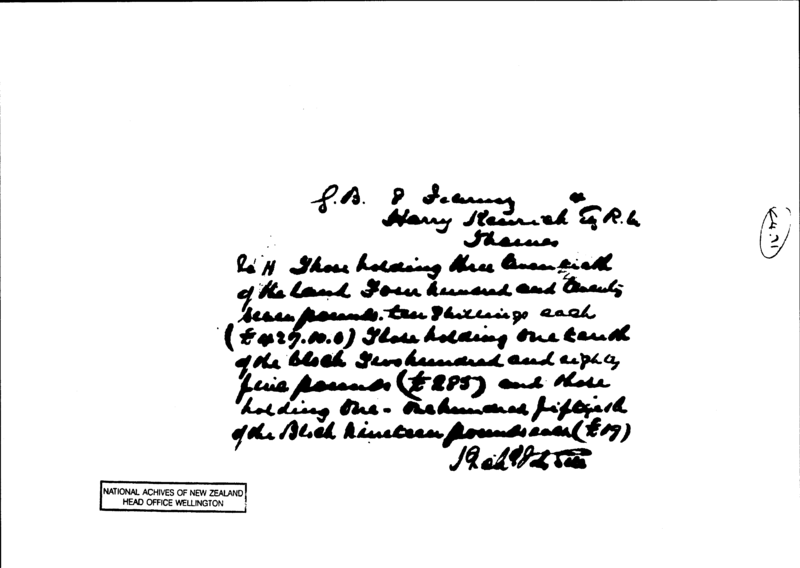 G.B. 8 Feb
Harry Kenrick Esq R.M.
Thames
Those holding three each
of the land Four hundred and twenty
seven pounds ten shillings each
(£427.10.0) Those holding one tenth
of the block Two hundred and eighty
five pounds (£285) and those
holding One - One hundred fiftyeth
of the Block Nineteen pounds each (£19)
NATIONAL ACHIVES OF NEW ZEALAND
HEAD OFFICE WELLINGTON